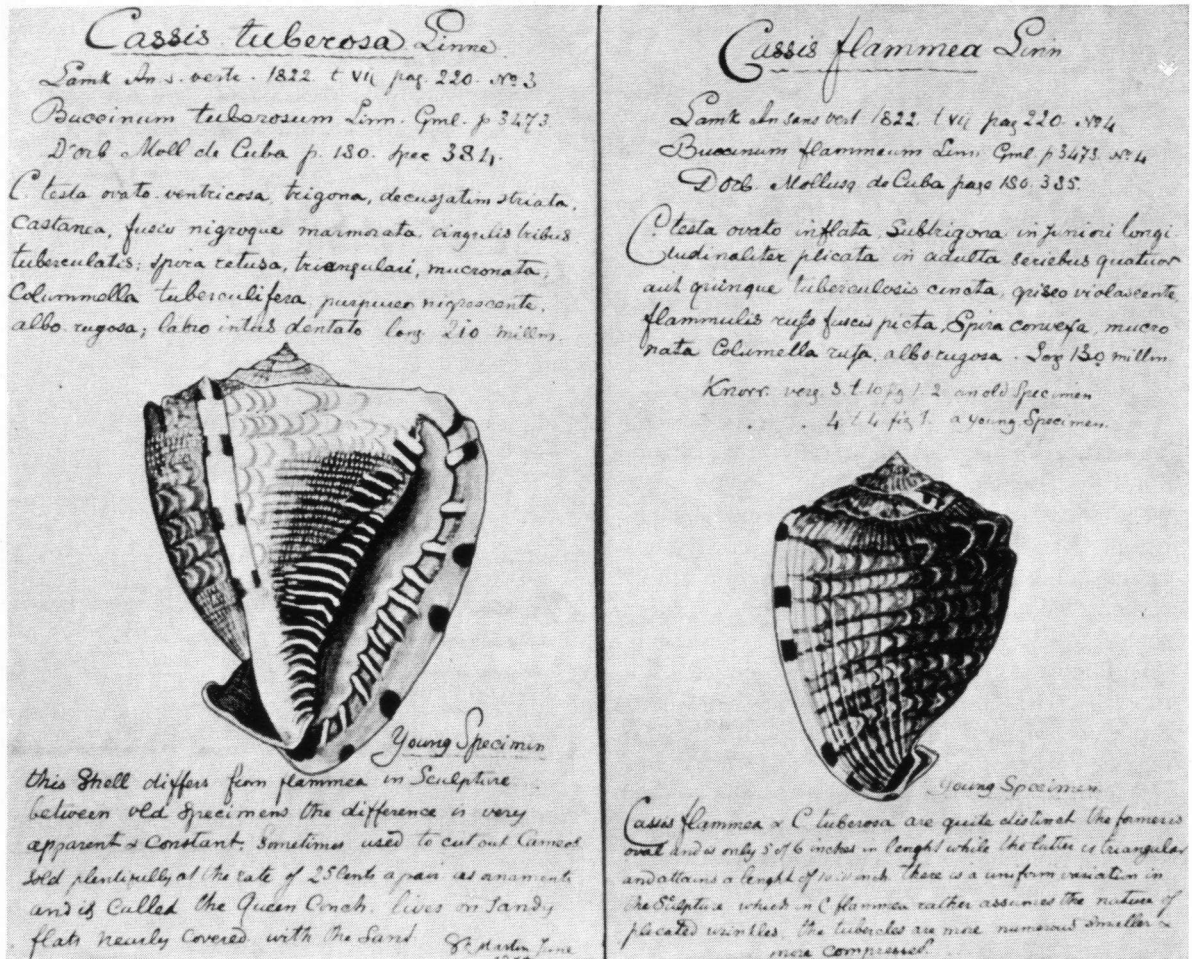 Cassis tuberosa Linne
Lamk An s. verte. 1822 t VII pag. 220. No 3
Buccinum tuberosum Linn. Gml. p 3473
D'orb Moll de Cuba p. 180. spec 384.
C. testa ovato ventricosa, trigona, decussatim striata,
Castanea, fusco nigroque marmorata, cingulis tribus
tuberculatis; spira retusa, triangulari, mucronata,
Colummella tuberculifera, purpureo nigrescente,
albo rugosa; labro intus dentato long 210 millm.
Young Specimin
this Shell differs from flammea in Sculpture
between old Specimens the difference is very
apparent & Constant. Sometimes used to cut out Cameos
Sold plentifully at the rate of 25 Cents a pair as ornaments
and is Called the Queen Conch. lives on Sandy
flats nearly Covered with the Sand
St Martin June
Cassis flammea Linn
Lamk An sans vert 1822. t VII pag 220. No 4
Buccinum flammeum Linn Gml. p 3473. No 4
D'orb. Mollusq de Cuba page 180. 385.
C. testa ovato inflata, Subtrigona in juniori longi
tudinaliter plicata in adulta seriebus quatuor
aut quinque tuberculosis cinata, griseo violascente,
flammulis rufo fuscis picta, Spira convexa, mucro
nata Columella rufa, albo rugosa. Long 130 millm
Knorr. verg. 3 t. 10 fig 1. 2 an old Specimen
4 t. 4 fig 1. a young Specimen.
Young Specimen
Cassis flammea & C. tuberosa are quite distinct the former is
oval and is only 5 of 6 inches in lenght while the latter is triangular
and attains a lenght of inch. There is a uniform variation in
the Sculpture which in C flammea rather assumes the nature of
plicated wrinkles, the tubercles are more numerous smaller &
more compressed.